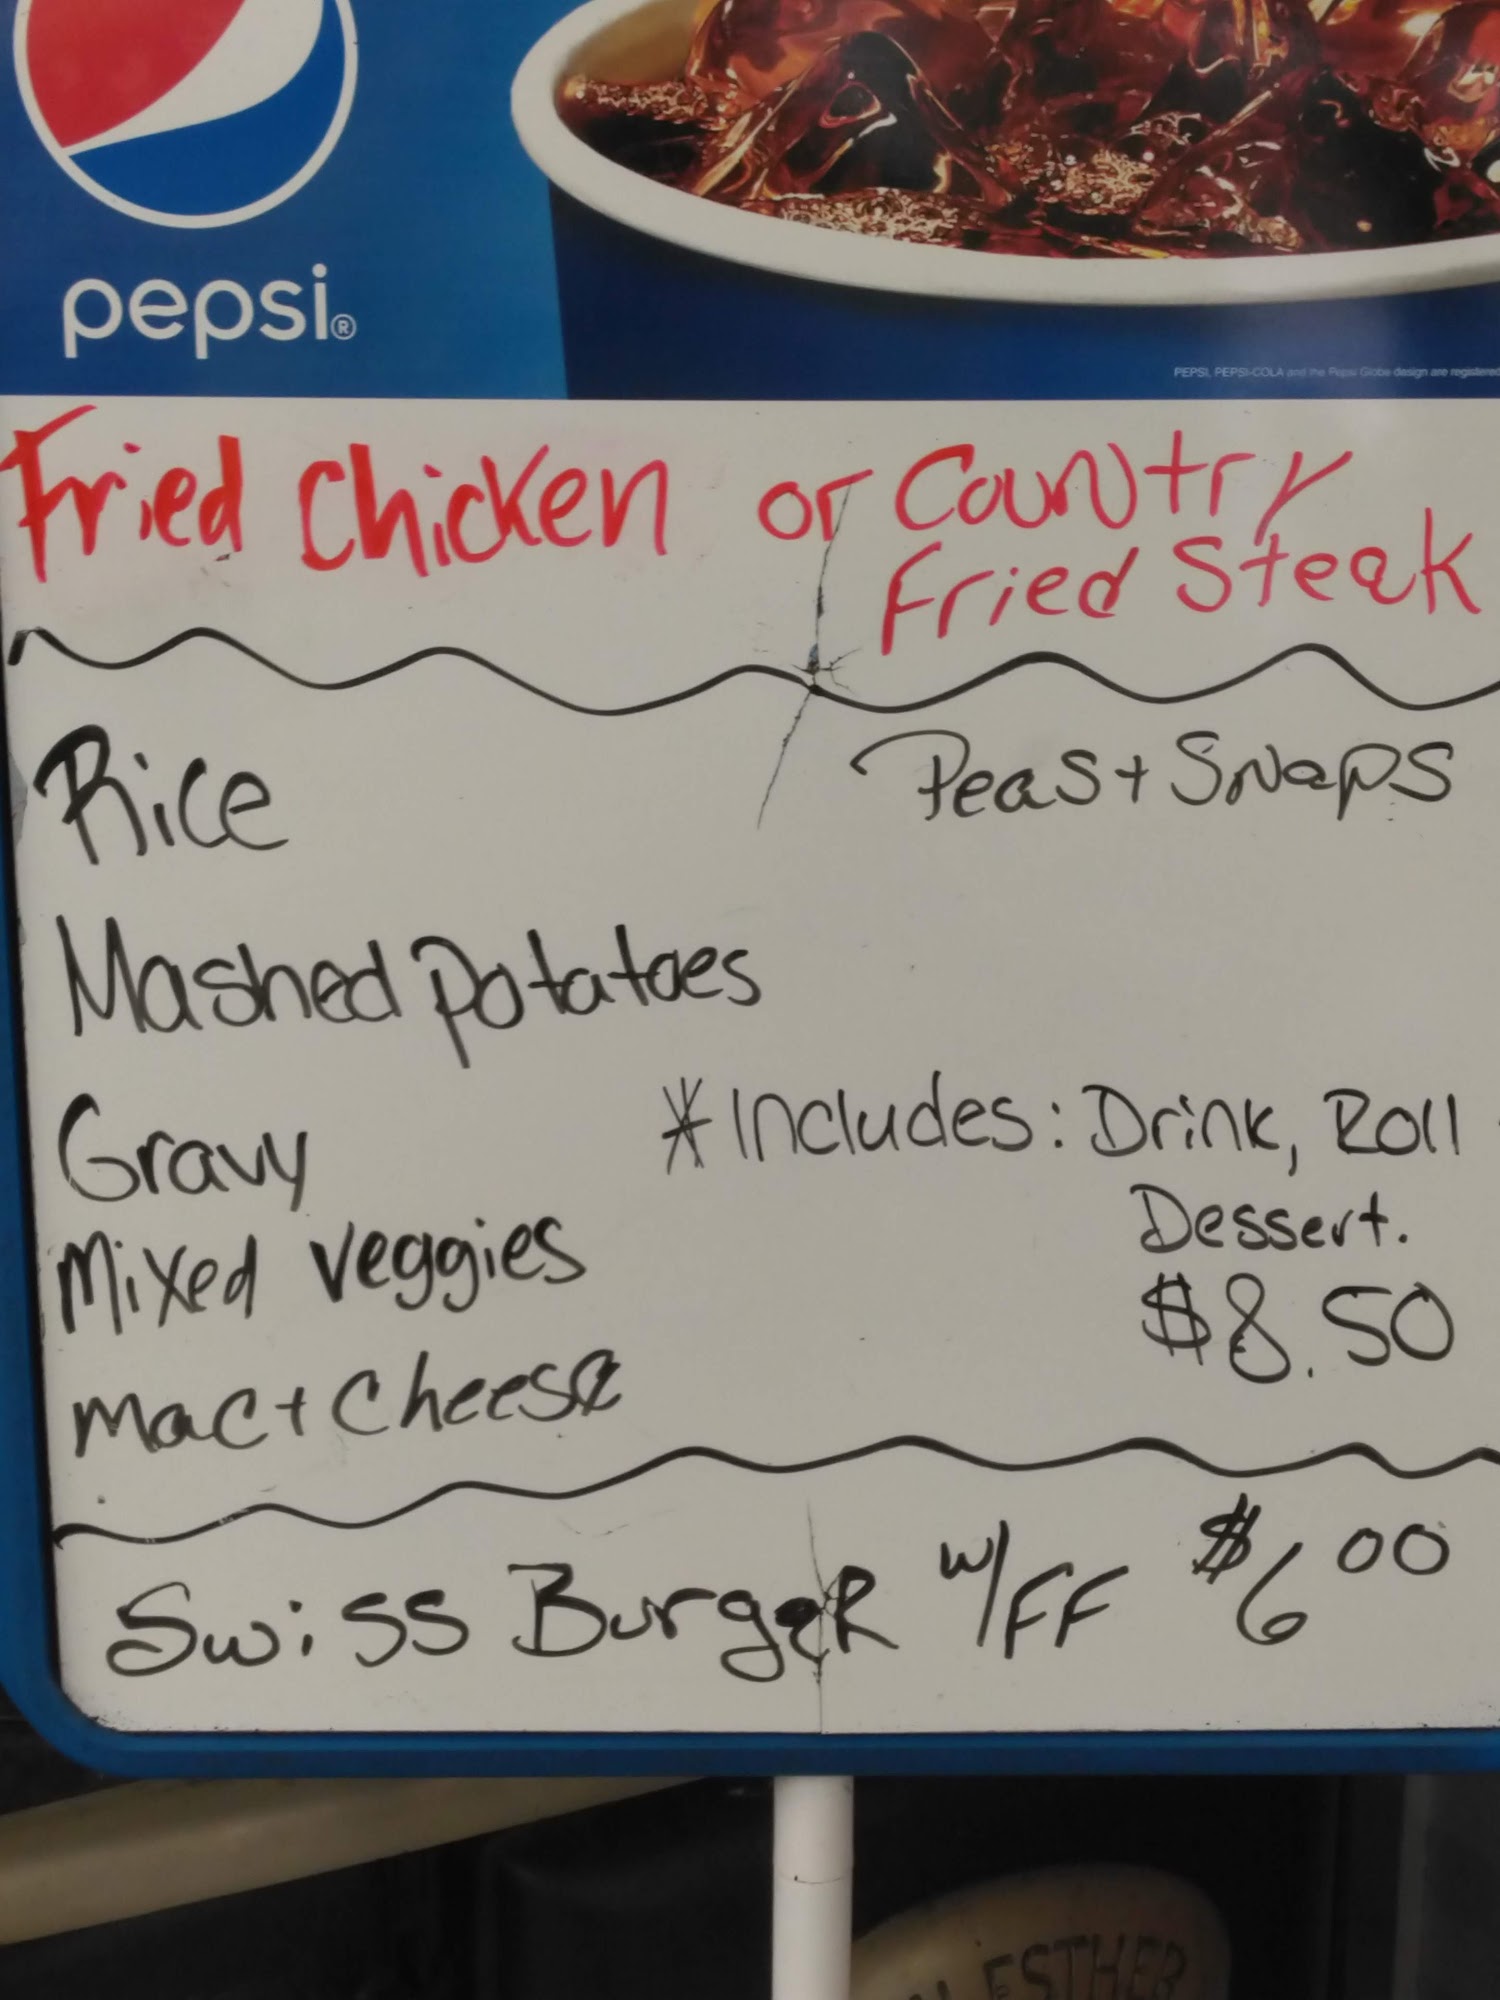 pepsi®
PEPSI, PEPSI-COLA and the Pepsi Globe design are registered
Fried Chicken or Country
Fried Steak
Rice
Peas + Snaps
Mashed potatoes
Gravy
* Includes: Drink, Roll
Dessert.
$8.50
Mixed veggies
Mac + Cheese
Swiss Burger w/FF $6.00
ESTHER